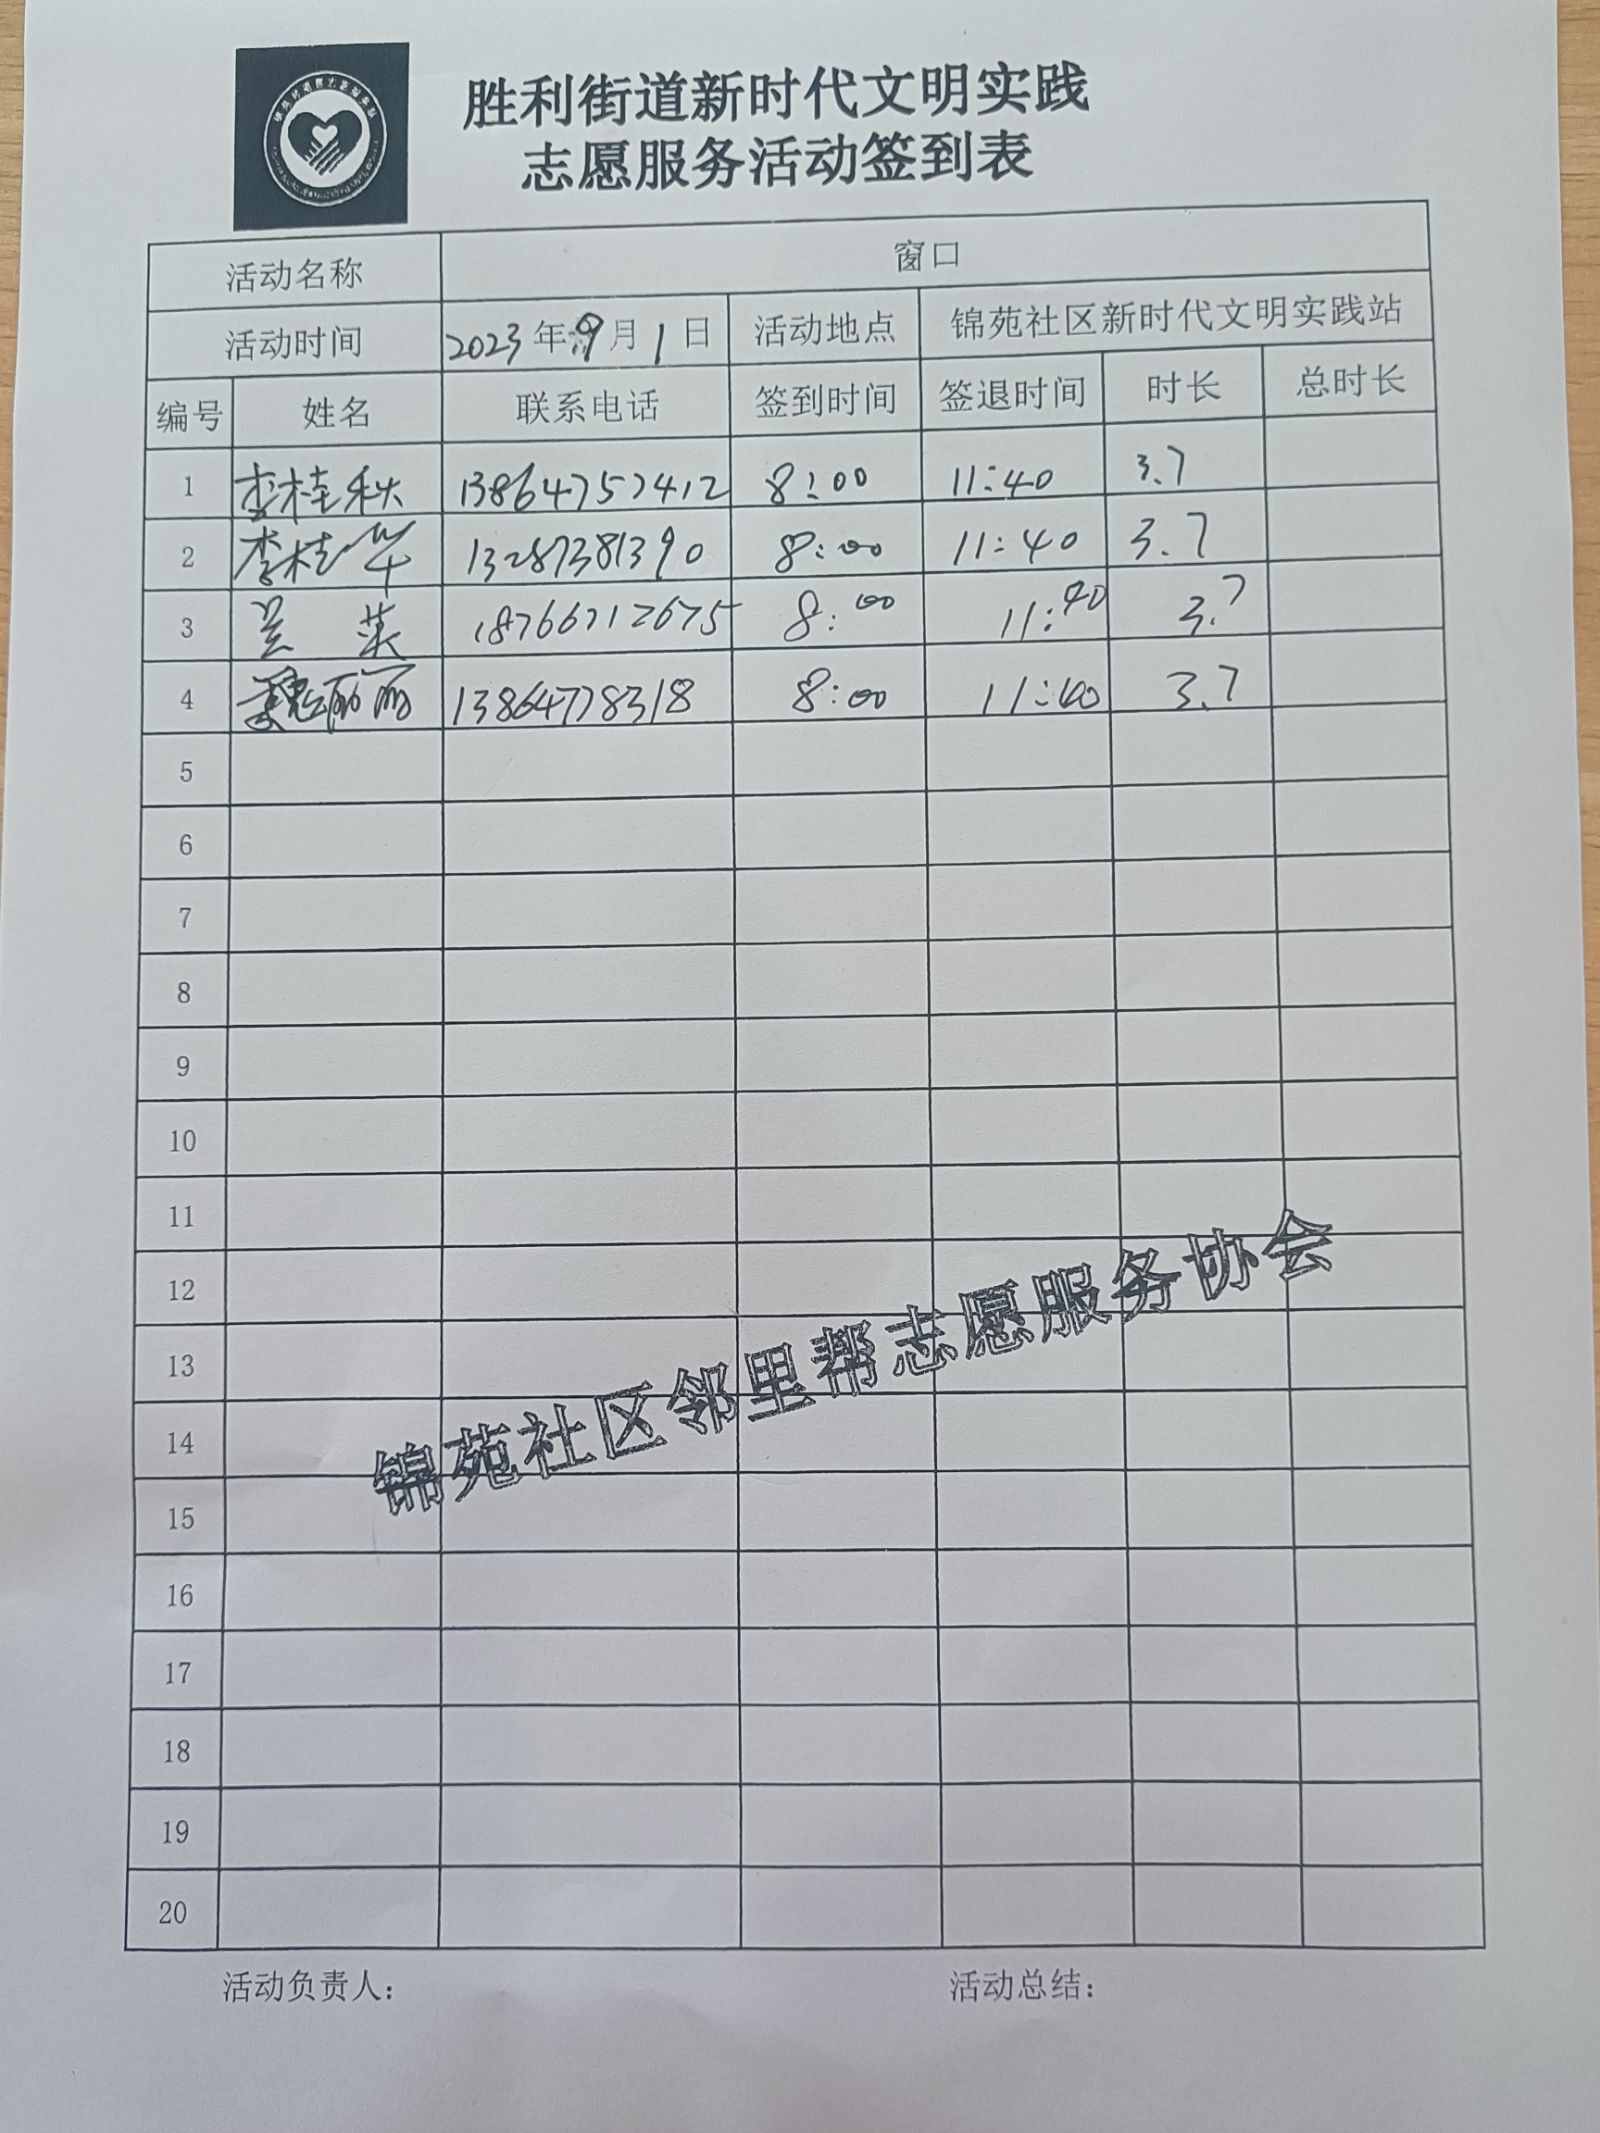 胜利街道新时代文明实践
志愿服务活动签到表
活动名称 窗口
活动时间 2023年9月1日 活动地点 锦苑社区新时代文明实践站
编号 姓名 联系电话 签到时间 签退时间 时长 总时长
1 李桂秋 13864757412 8:00 11:40 3.7
2 李桂华 13287381390 8:00 11:40 3.7
3 18766712675 8:00 11:40 3.7
4 魏丽丽 13864778318 8:00 11:40 3.7
5
6
7
8
9
10
11
12
13
14
15
16
17
18
19
20
锦苑社区邻里帮志愿服务协会
活动负责人： 活动总结：